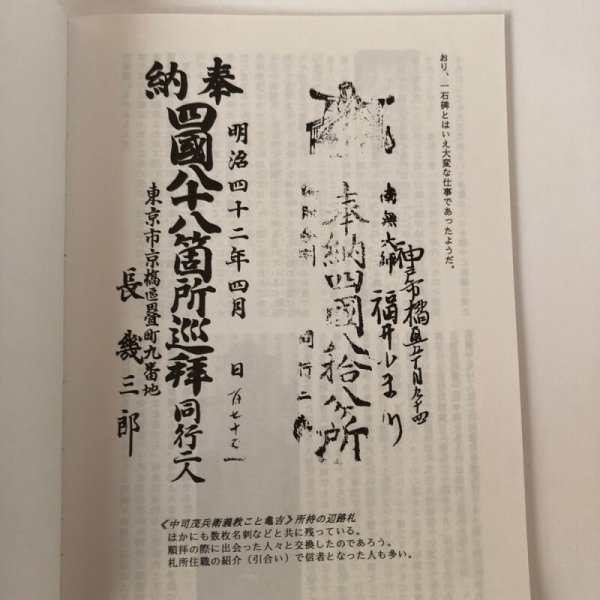 おり、一石碑とはいえ大変な仕事であったようだ。
南無大師
奉納四國八拾八ヶ所
同行二
奉納
明治四十二年四月 日
四國八十八箇所巡拜 同行二人
東京市京橋區疊町九番地
長幾三郎
《中司茂兵衛義教こと亀吉》所持の辺路札
ほかにも数枚名刺などと共に残っている。
順拝の際に出会った人々と交換したのであろう。
札所住職の紹介（引合い）で信者となった人も多い。